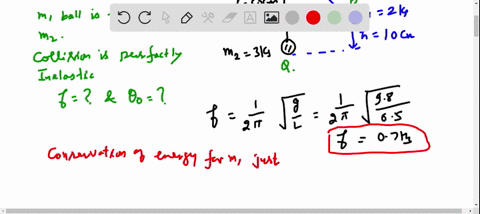 m₁ ball is
m₂.
Collision is perfectly
Inelastic
f = ? & θ₀ = ?
= 2 kg
h = 10 cm
m₂ = 3 kg
Q.
f = 1/2π √g/L = 1/2π √9.8/0.5
f = 0.7 Hz
Conservation of energy for m₁ just